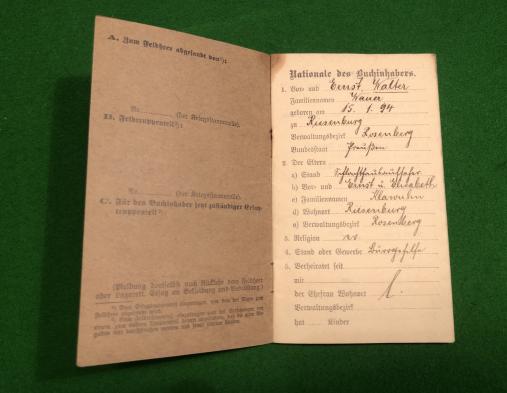 A. Zum Feldheer abgesandt von¹):
No. (der Kriegsstammrolle).
B. Feldtruppenteil²):
No. (der Kriegsstammrolle).
C. Für den Buchinhaber jetzt zuständiger Ersatztruppenteil
(Meldung dortselbst nach Rückkehr vom Feldheer
oder Lazarett. Ersatz an Bekleidung und Ausrüstung.)
Nationale des Buchinhabers.
1. Vor- und Ernst, Walter
Familiennamen Wauer
geboren am 15. 1. 94
zu Riesenburg
Verwaltungsbezirk Rosenberg
Bundesstaat Preußen
2. Der Eltern
a) Stand
b) Vor- und Ernst u. Elisabeth
c) Familiennamen
d) Wohnort Riesenburg
e) Verwaltungsbezirk Rosenberg
3. Religion ev
4. Stand oder Gewerbe Bürogehilfe
5. Verheiratet seit
mit
der Ehefrau Wohnort
Verwaltungsbezirk
hat Kinder